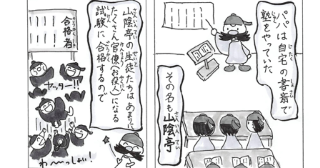 パパは自宅の書斎で
塾をやっていた
その名も山陰亭
山陰亭の生徒たちはあまりに
たくさん官僚(お役人)になる
試験に合格するので
合格者
ヤッター!!
わ〜〜っしょい!